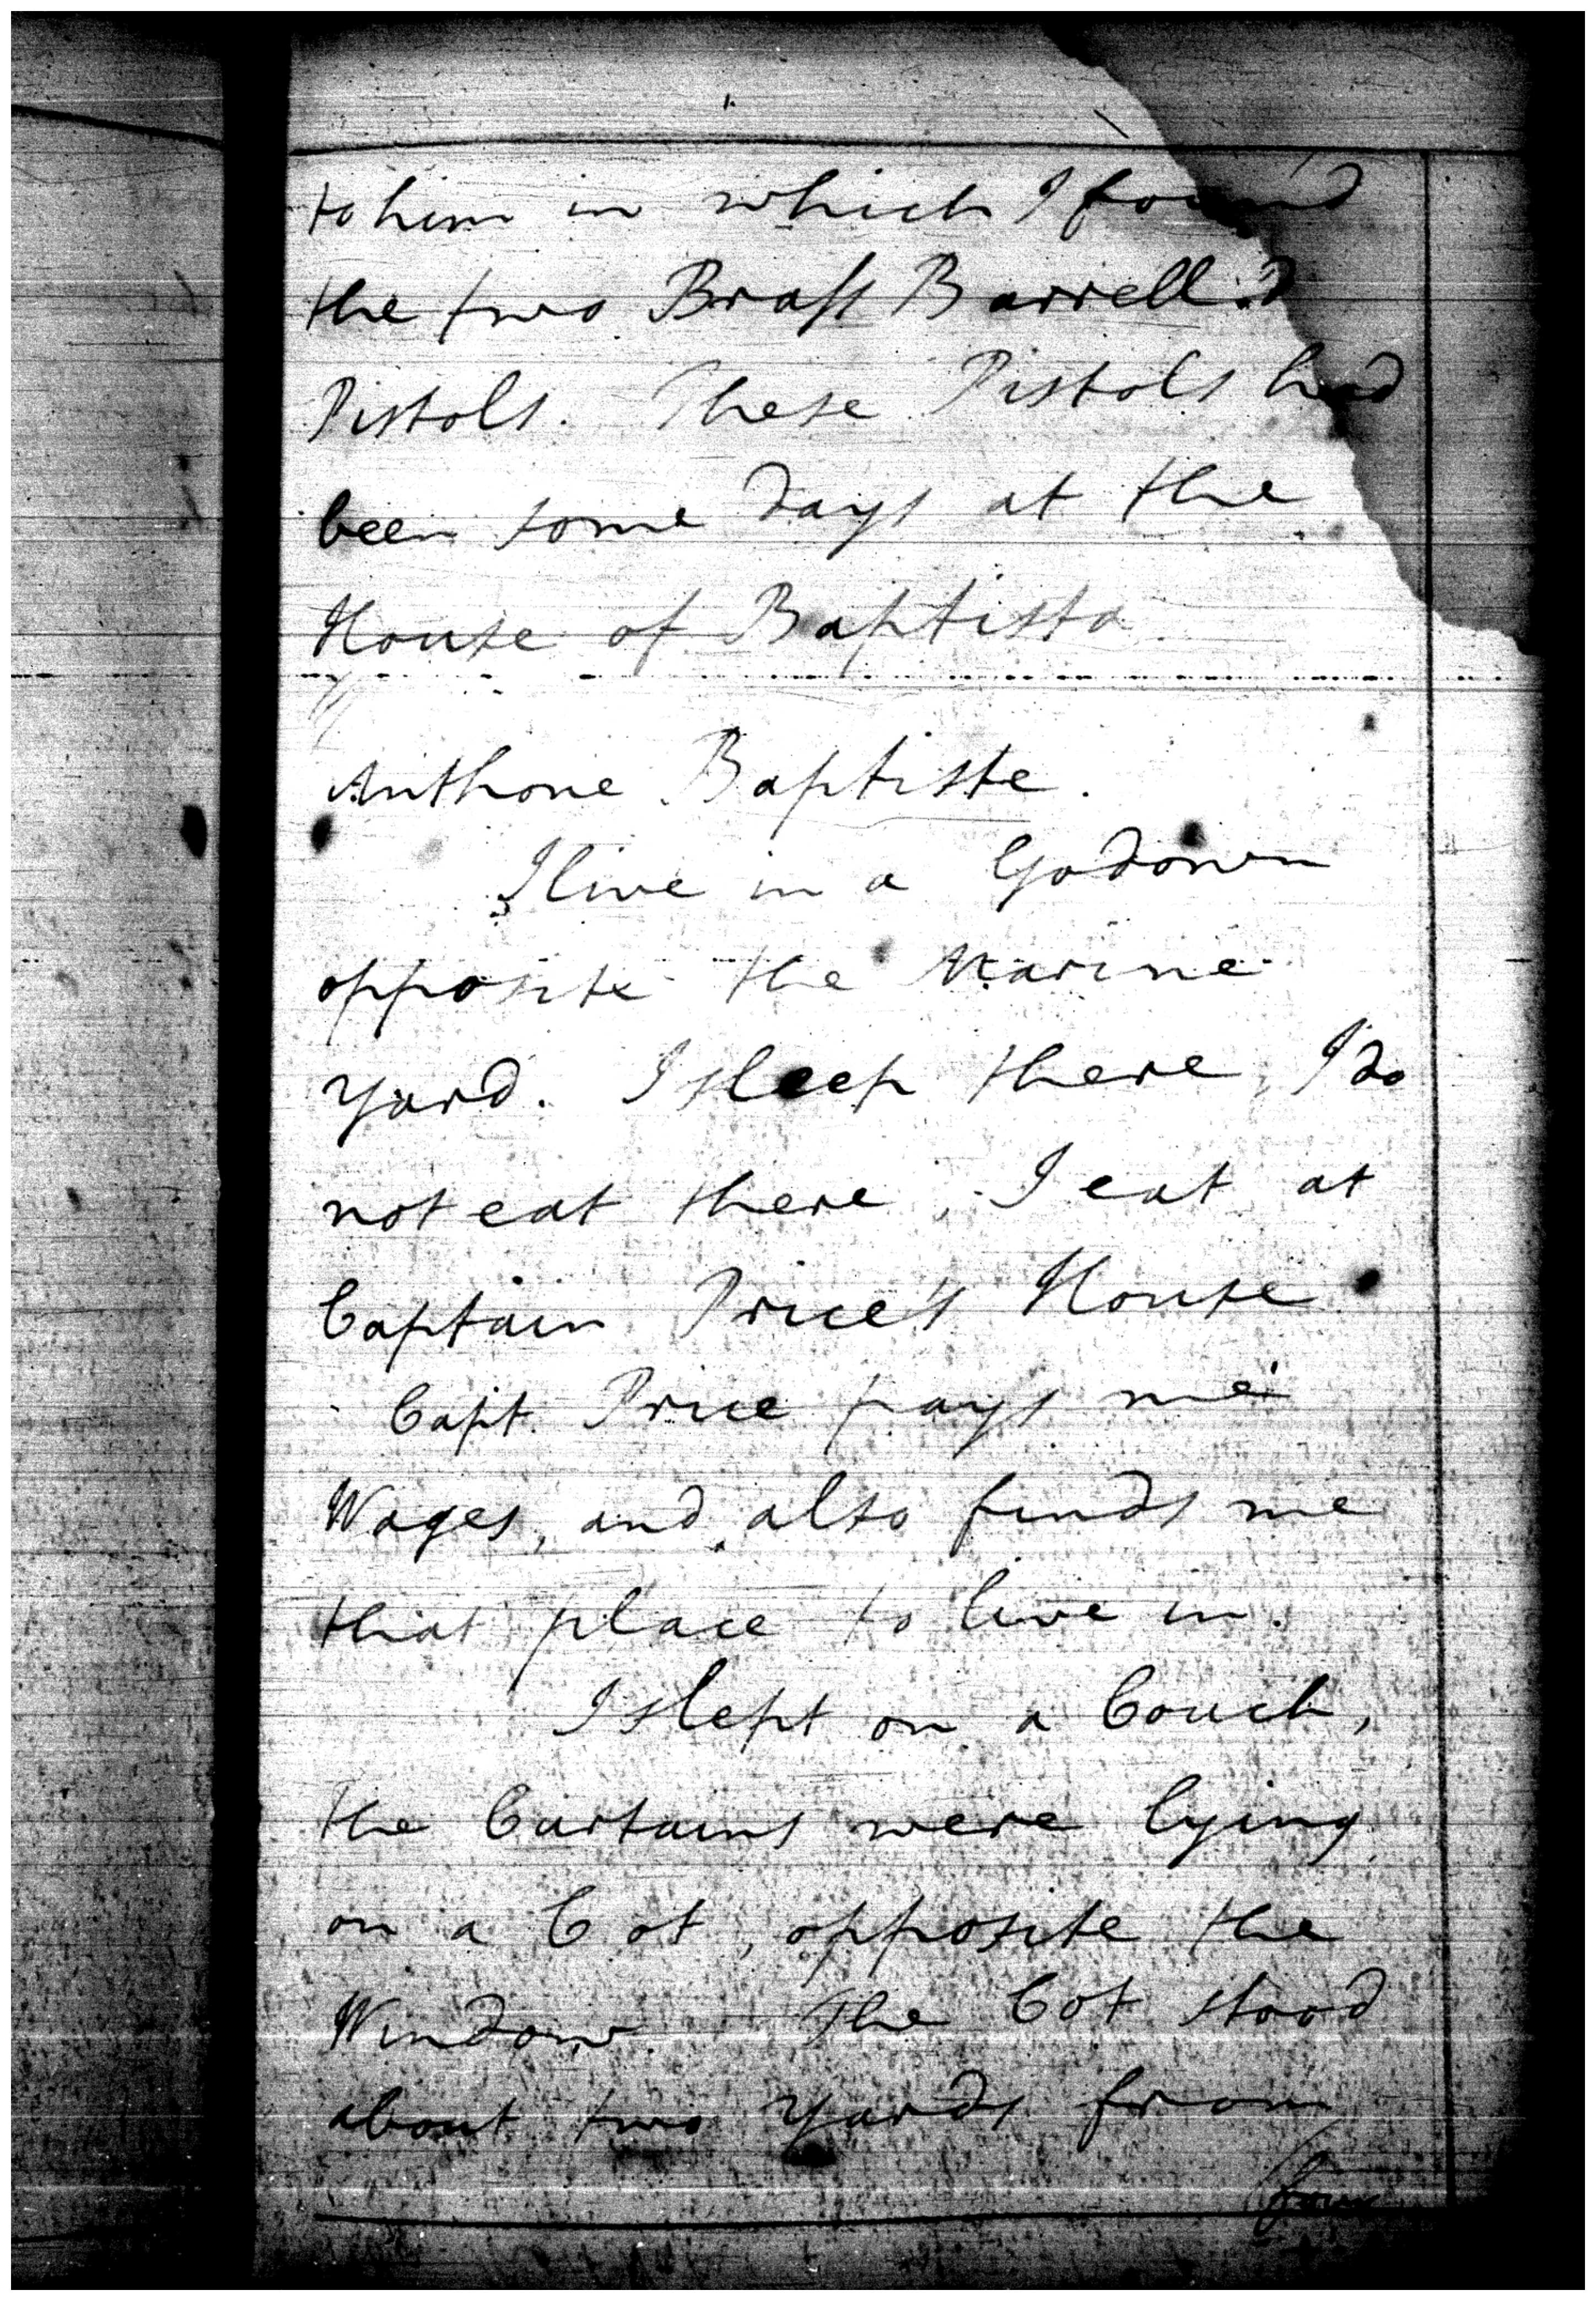 to him in which I found
the two Brass Barrell'd
Pistols. These Pistols had
been some days at the
House of Baptista.
Anthone Baptiste.
I live in a Godown
opposite the Marine
Yard. I sleep there, I do
not eat there, I eat at
Captain Price's House
Capt. Price pays me
Wages, and also finds me
that place to live in.
I slept on a Couch,
the Curtains were lying
on a Cot, opposite the
Window. The Cot stood
about two Yards from